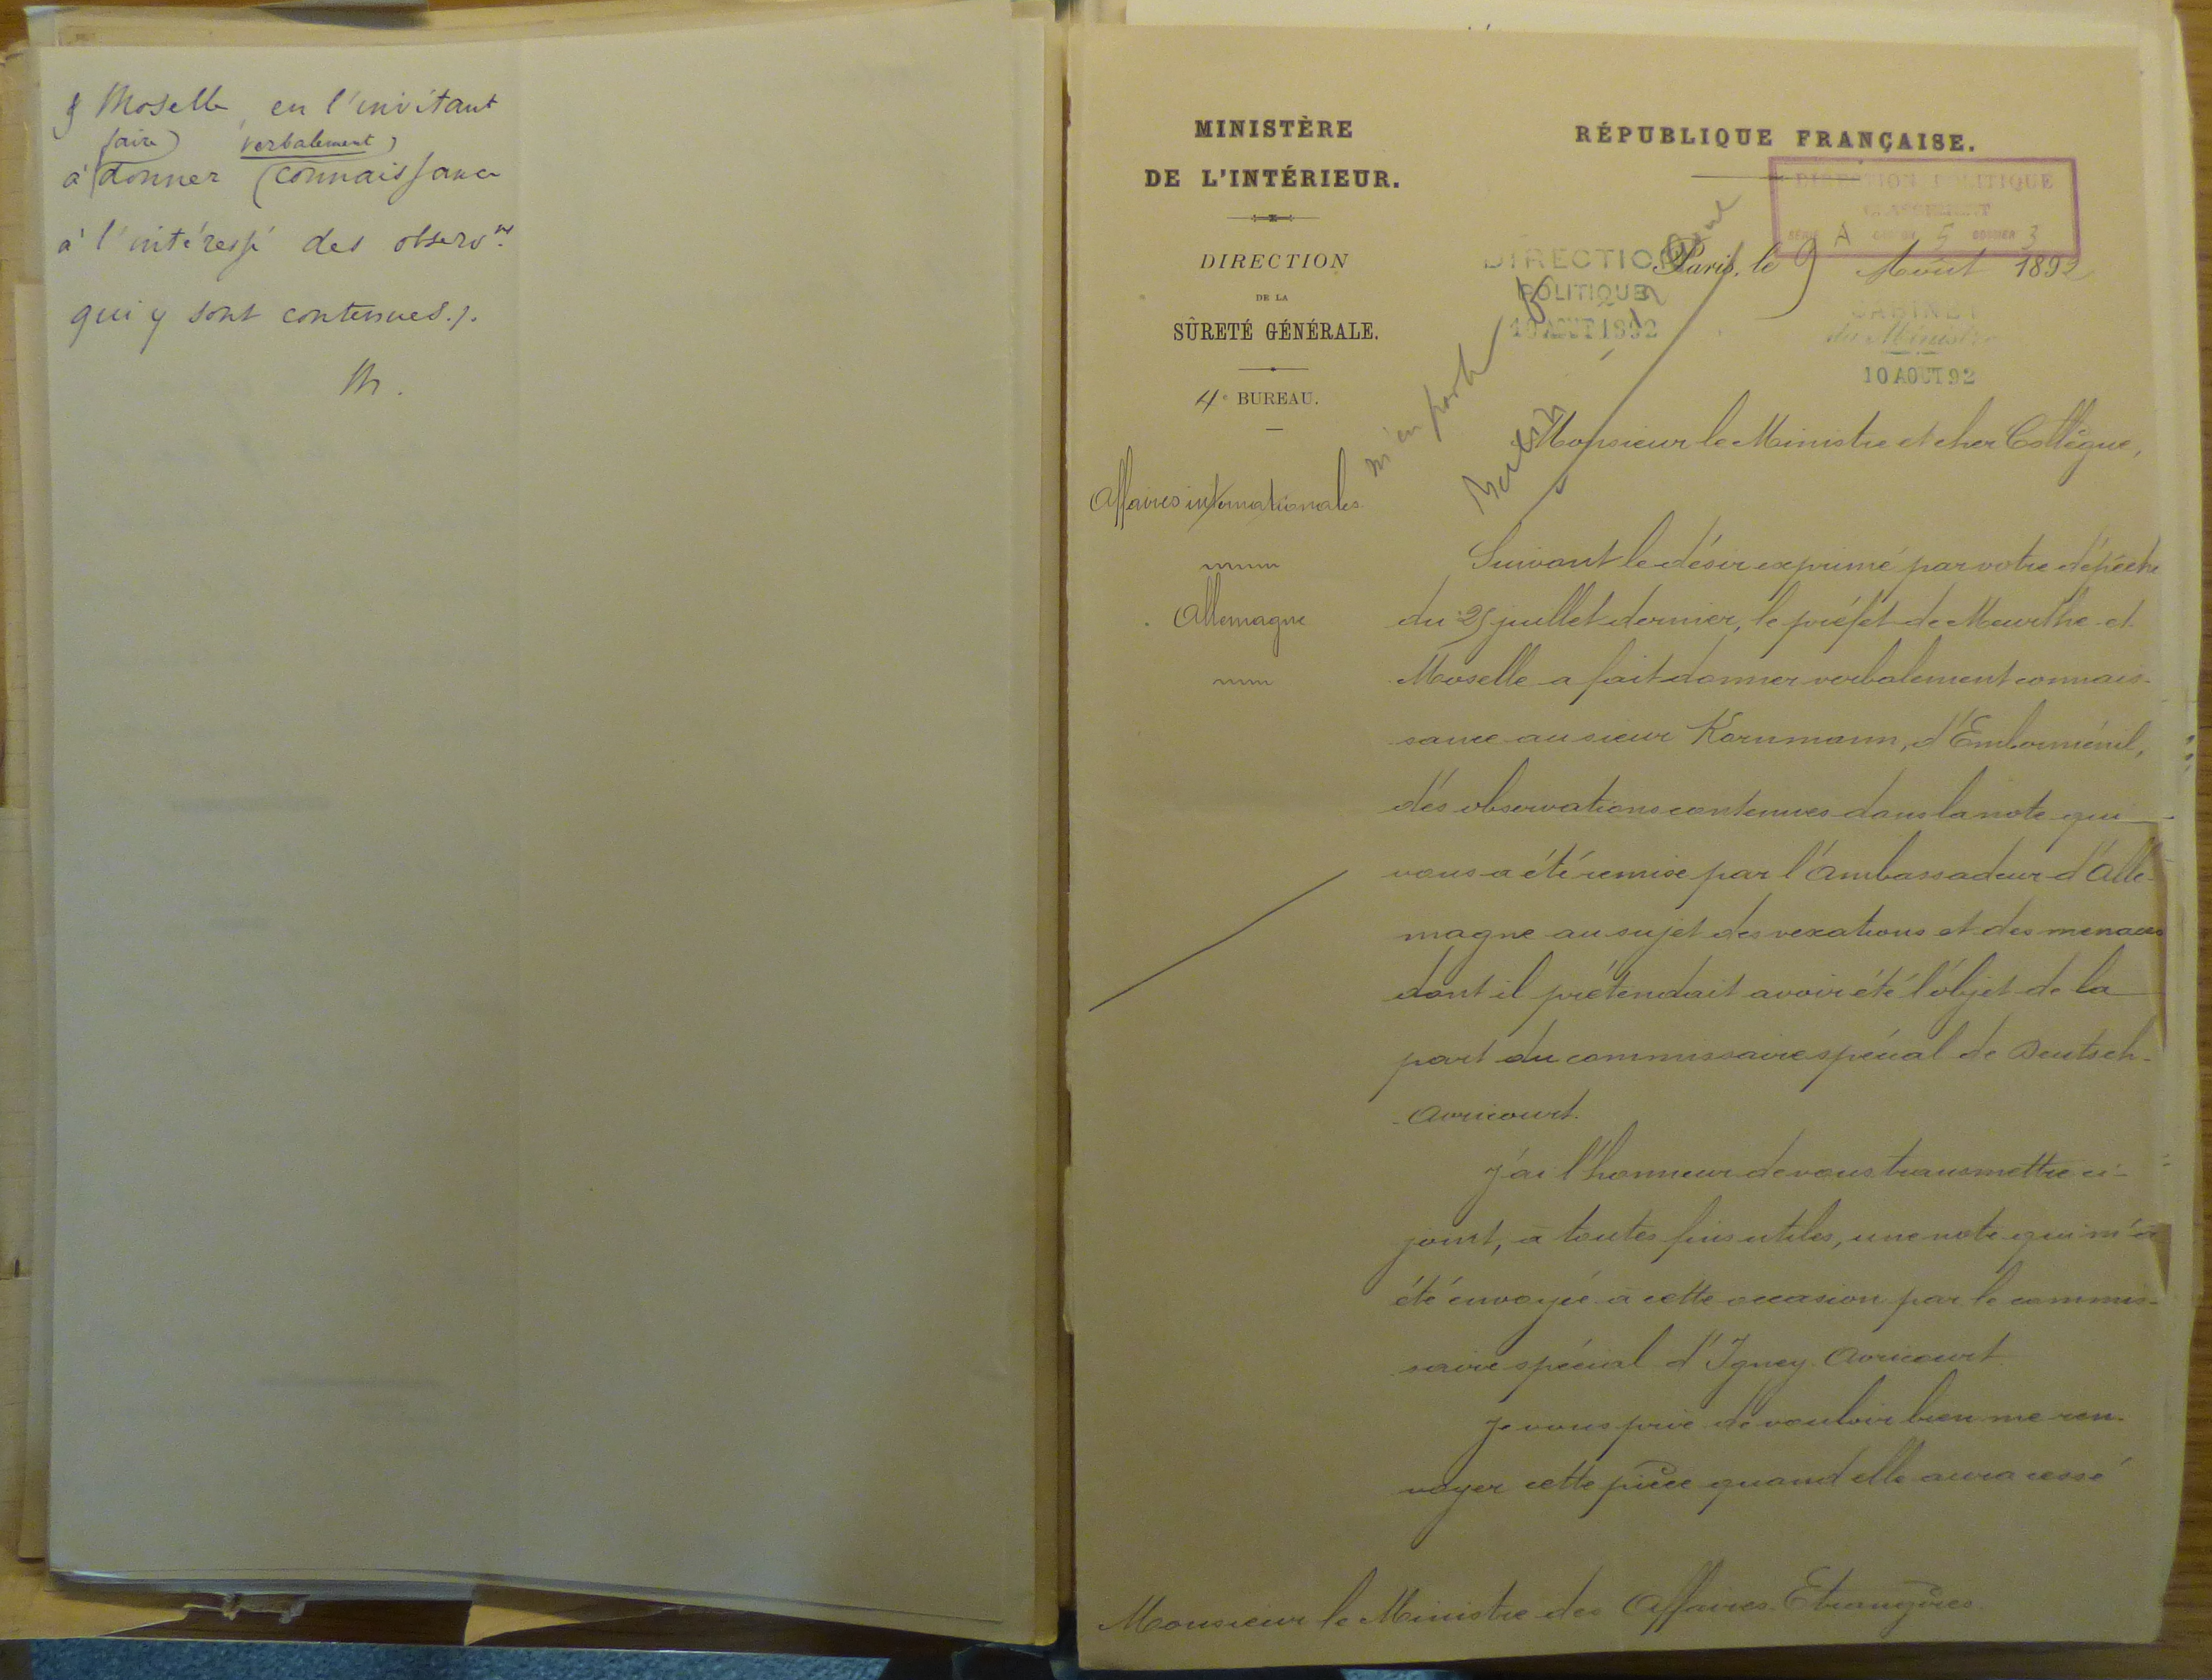 & Moselle, en l'invitant
faire verbalement
à donner connaissance
à l'intéressé des observ.ns
qui y sont contenues./.
Th.
MINISTÈRE
DE L'INTÉRIEUR.
DIRECTION
DE LA
SÛRETÉ GÉNÉRALE.
4e BUREAU.
Affaires internationales
Allemagne
RÉPUBLIQUE FRANÇAISE.
DIRECTION POLITIQUE
CLASSEMENT
SÉRIE A CARTON 5 DOSSIER 3
Paris, le 9 Août 1892
DIRECTION
POLITIQUE
10 AOUT 1892
CABINET
du Ministre
10 AOUT 92
m'en parler
Berlin
Monsieur le Ministre et cher Collègue,
Suivant le désir exprimé par votre dépêche
du 25 juillet dernier, le préfet de Meurthe et
Moselle a fait donner verbalement connais-
sance au sieur Kornmann, d'Emberménil,
des observations contenues dans la note qui
vous a été remise par l'Ambassadeur d'Alle-
magne au sujet des vexations et des menaces
dont il prétendait avoir été l'objet de la
part du commissaire spécial de Deutsch-
Avricourt.
J'ai l'honneur de vous transmettre ci-
joint, à toutes fins utiles, une note qui m'a
été envoyée à cette occasion par le commis-
saire spécial d'Igney-Avricourt
Je vous prie de vouloir bien me ren-
voyer cette pièce quand elle aura cessé
Monsieur le Ministre des Affaires Etrangères